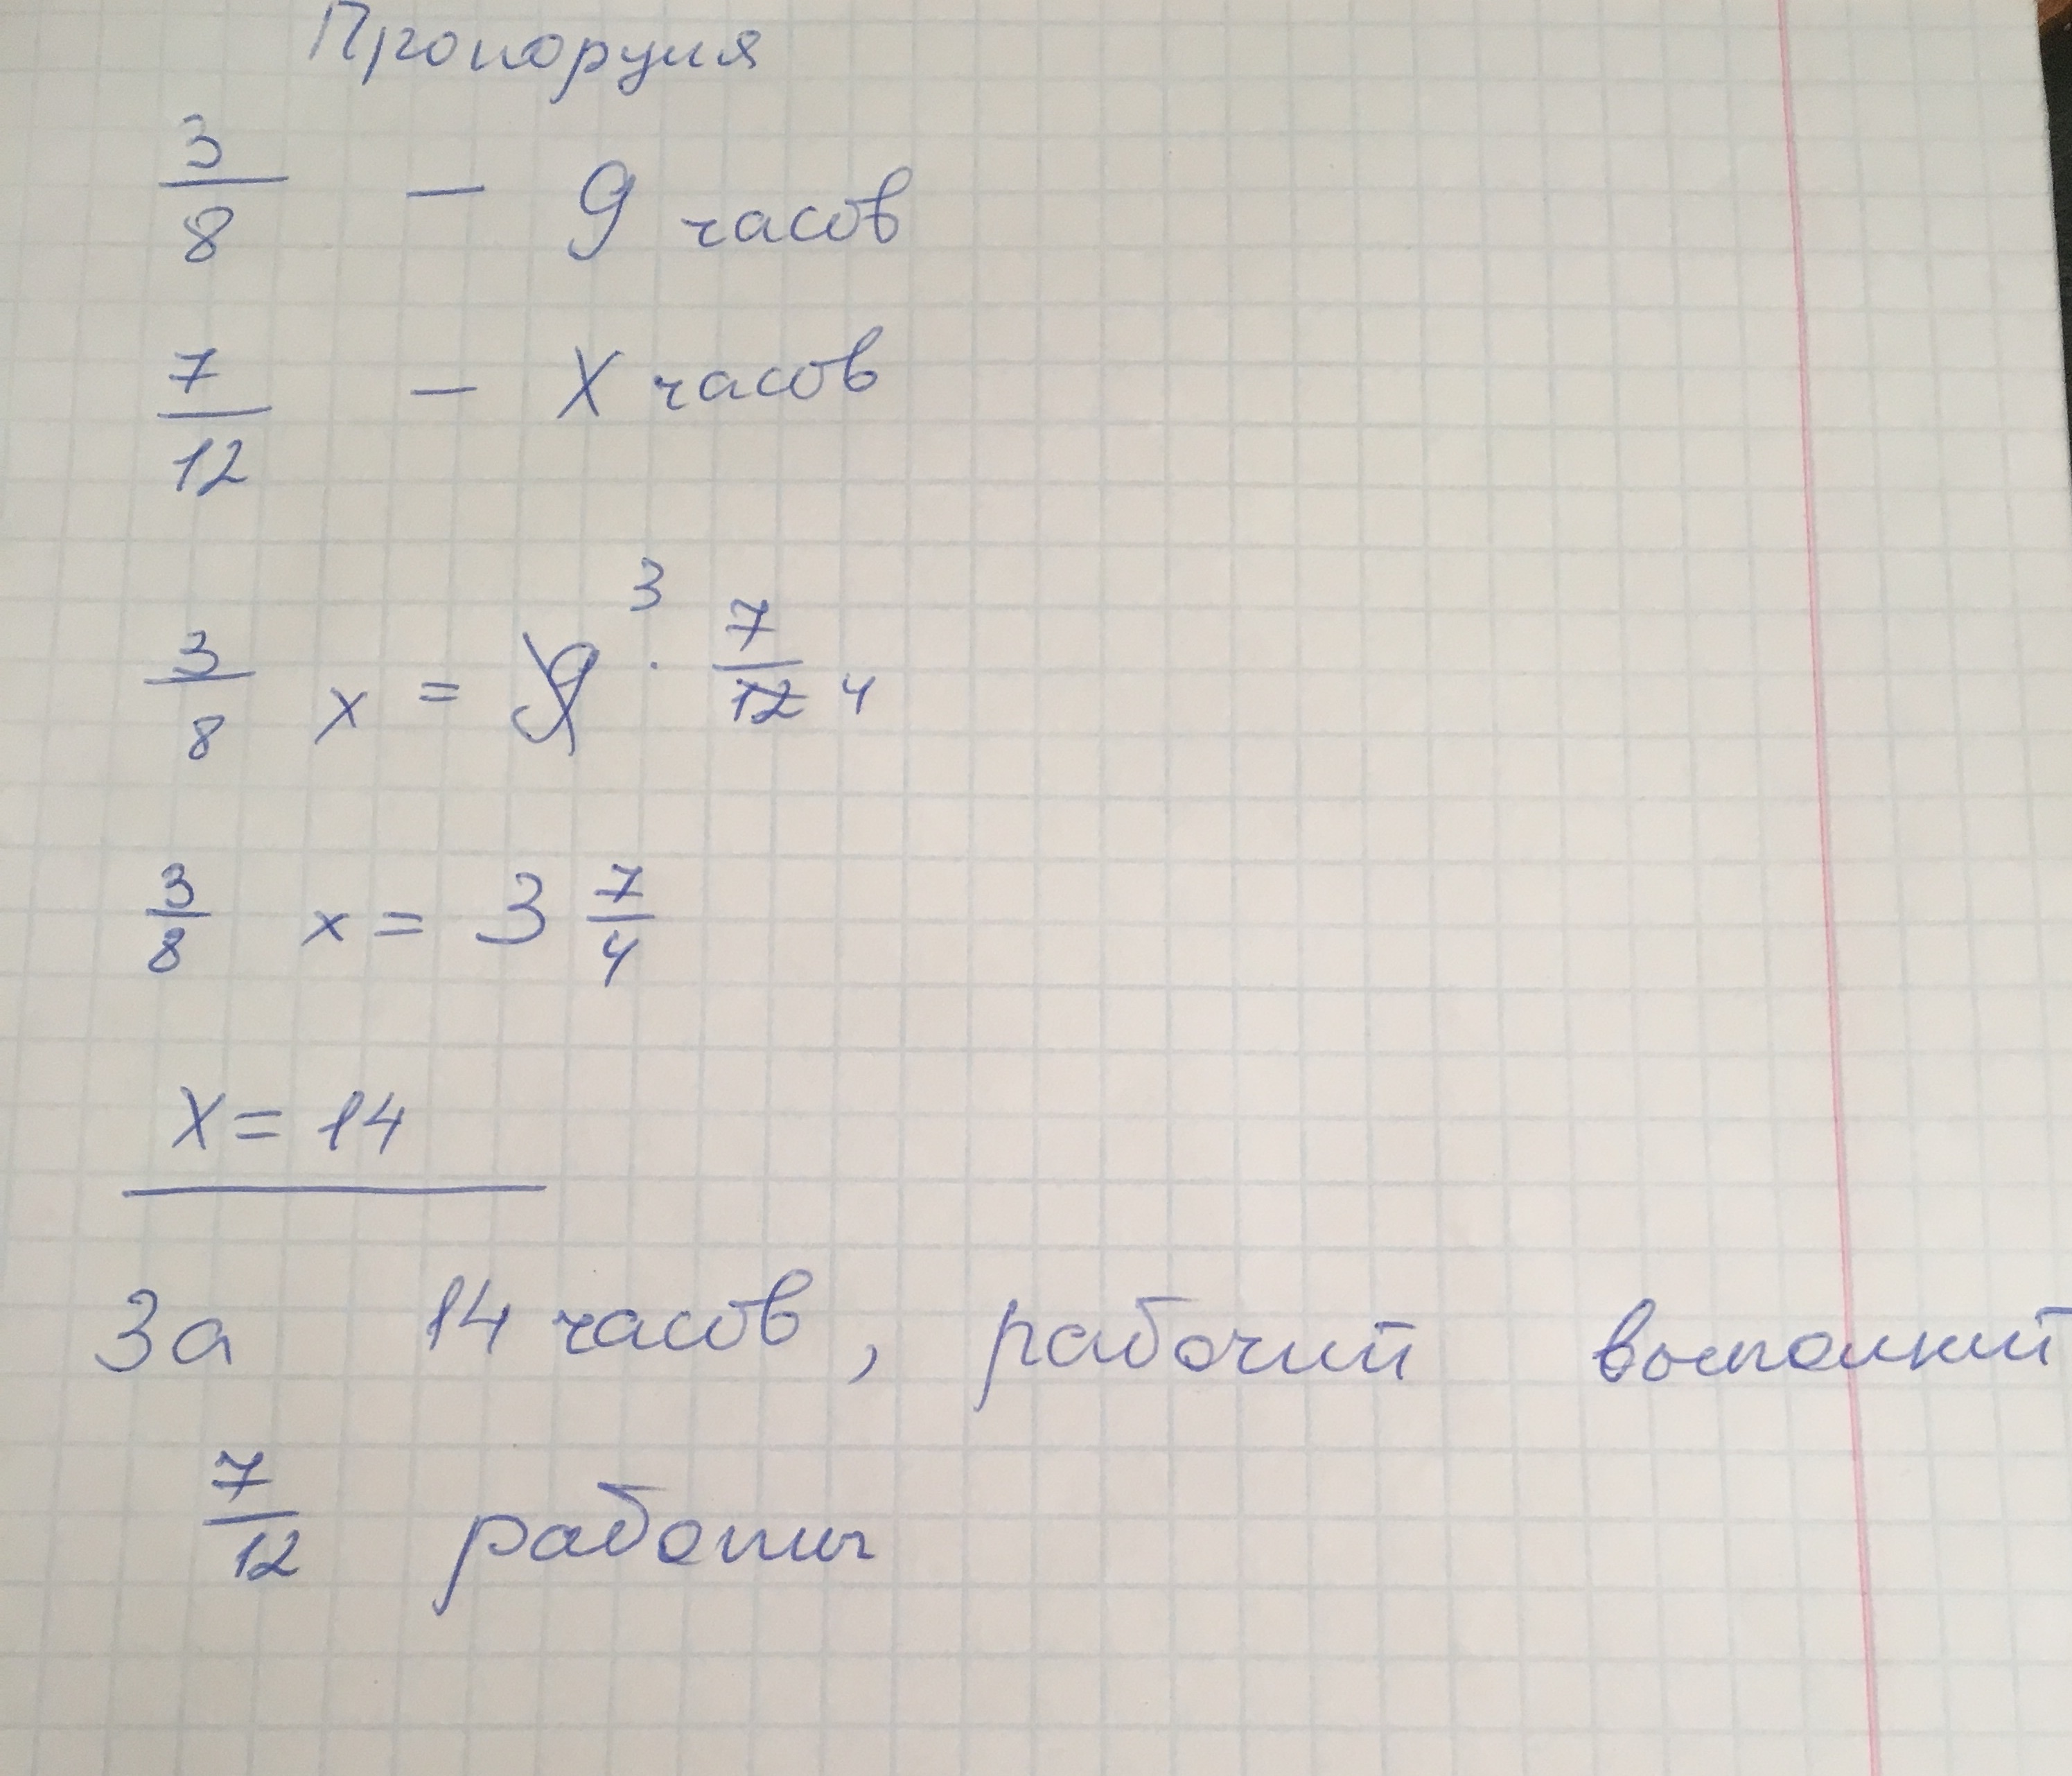 Пропорция
3/8 – 9 часов
7/12 – X часов
3/8 x = 9 3 · 7/12 4
3/8 x = 3 7/4
X = 14
За 14 часов, рабочий выполнит
7/12 работы